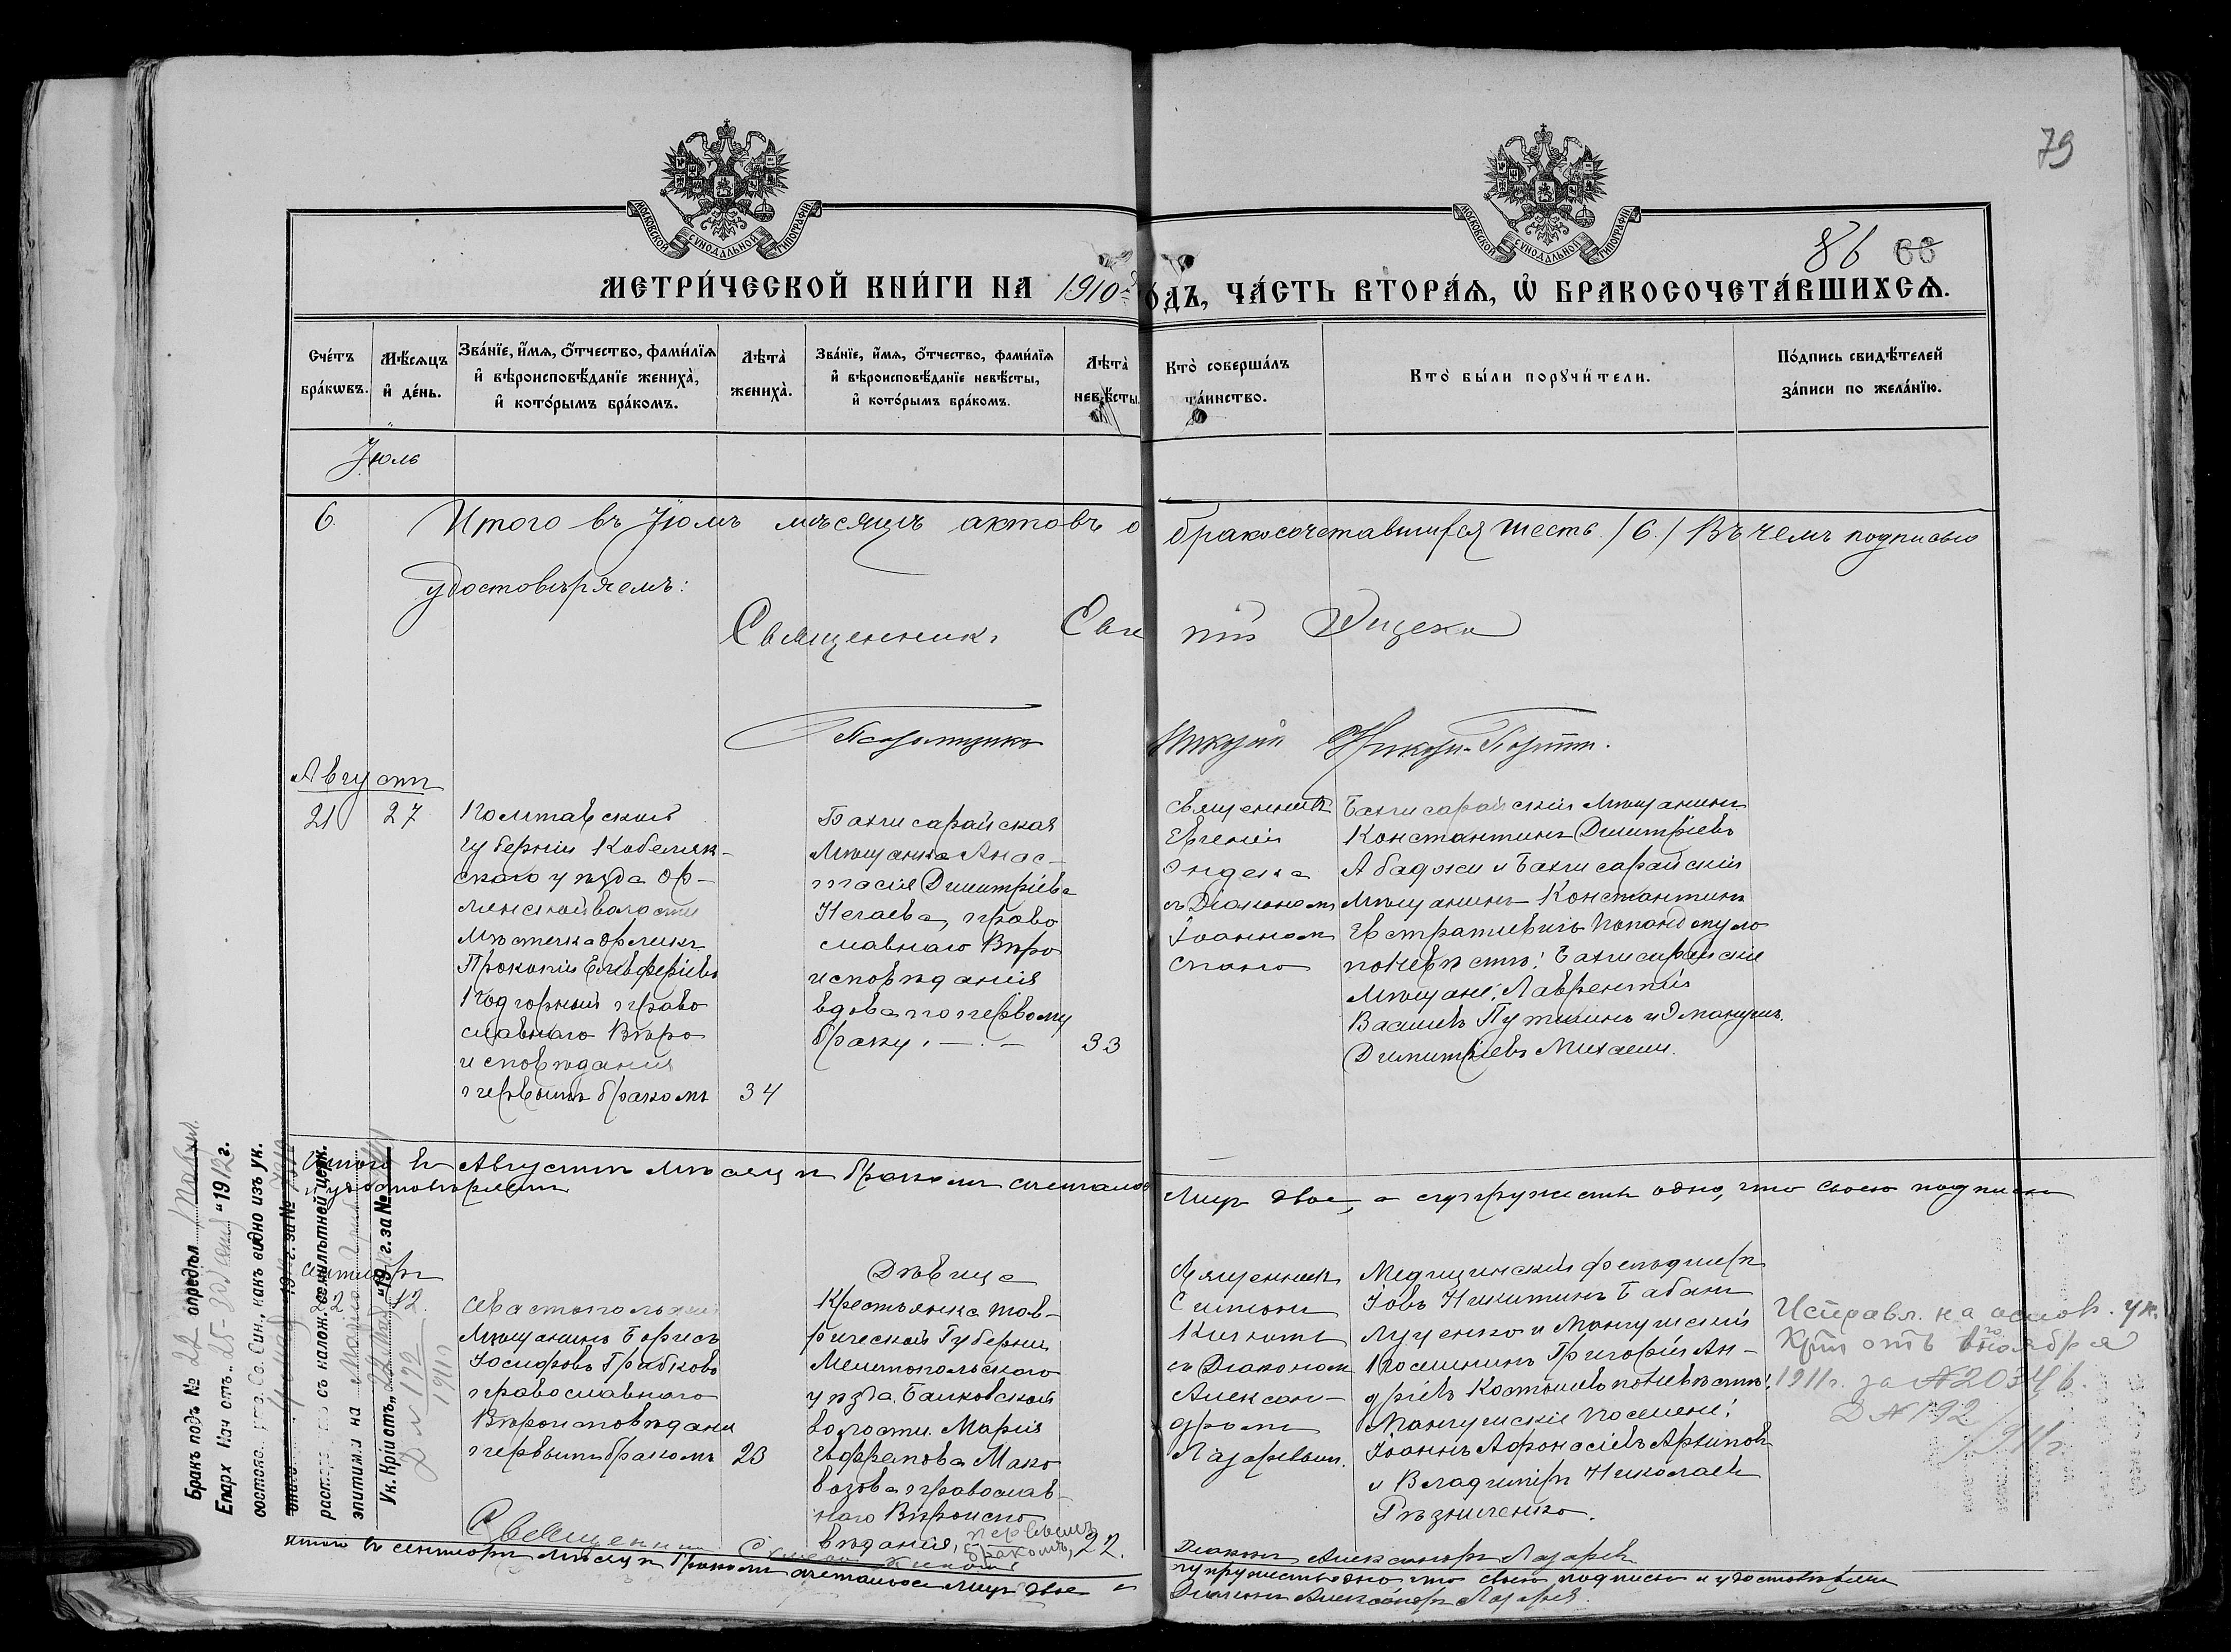 79
86 66
МОСКОВСКОЙ СѴНОДАЛЬНОЙ ТИПОГРАФІИ
МОСКОВСКОЙ СѴНОДАЛЬНОЙ ТИПОГРАФІИ
МЕТРИ́ЧЕСКОЙ КНИ́ГИ НА 1910 ГО́ДЪ, ЧА́СТЬ ВТОРА́Ѧ, Ѡ҆ БРАКОСОЧЕТА́ВШИХСѦ.
Сче́тъ бра́кѡвъ.
Мѣ́сѧцъ и҆ де́нь.
Зва́нїе, и҆́мѧ, о҆́тчество, фамилі́ѧ и҆ вѣроисповѣ́данїе жениха̀, и҆ кото́рымъ бра́комъ.
Лѣта̀ жениха̀.
Зва́нїе, и҆́мѧ, о҆́тчество, фамилі́ѧ и҆ вѣроисповѣ́данїе невѣ́сты, и҆ кото́рымъ бра́комъ.
Лѣта̀ невѣ́сты.
Кто̀ соверша́лъ та́инство.
Кто̀ бы́ли порꙋчи́тели.
По́дпись свидѣ́телей за́писи по жела́нїю.
Іюль
6. Итого въ Іюлѣ мѣсяцѣ актовъ о бракосочетавшихся шесть /6/ Въ чемъ подписью
удостовѣряемъ:
Священникъ Евгеній Эндека
Псаломщикъ Николай
Августъ
21 27
Полтавской
губерніи Кобеляк-
скаго уѣзда Ор-
ликской волости
Мѣстечка Орликъ
Прокопій Елевферіевъ
Подгорный право
славнаго Вѣро
исповѣданія
первымъ бракомъ 34
Бахчисарайская
Мѣщанка Анас-
тасія Димитріева
Нечаева, право
славнаго Вѣро
исповѣданія
вдова по первому
браку. 33
Священникъ
Евгеній
Эндека
съ Діакономъ
Іоанномъ
Бахчисарайскій Мѣщанинъ
Константинъ Димитріевъ
Абаджи и Бахчисарайскій
Мѣщанинъ Константинъ
Евстратіевичъ
по невѣстѣ: Бахчисарайскіе
Мѣщане: Лаврентій
Васильевъ Путилинъ и Эмануилъ
Димитріевъ Михаели.
Итого въ Августѣ мѣсяцѣ бракомъ сочеталось лицъ двое, а супружествъ одно, что своею подписью
и удостовѣряемъ
Сентябрь
22 12.
Севастопольскій
Мѣщанинъ Борисъ
Іосифовъ Грабковъ
православнаго
Вѣроисповѣданія
первымъ бракомъ 23
Дѣвица
Крестьянка Тав-
рической Губерніи
Мелитопольскаго
уѣзда Балковской
волости Марія
Евфратова Мако
возова православ-
наго Вѣроиспо
вѣданія, первымъ
бракомъ, 22.
Священникъ
Симеонъ
съ Діакономъ
Алексан-
дромъ
Лазаревымъ.
Медицинскій фельдшеръ
Іовъ Никитинъ Бабан
Луценко и Мангушскій
Поселянинъ Григорій Ан-
дреевъ Костылевъ по невѣстѣ:
Мангушскіе поселяне:
Іоаннъ Афонасіевъ Архиповъ
и Владиміръ Николаевъ
Рѣзниченко.
Исправл. на основ. ук.
1911г. за №
Д №192
1911г.
Бракъ подъ № 22 опредѣл.
Епарх. Нач. отъ 25-30 1912 г.
состояв. утв. Св. Син., какъ видно изъ ук.
растор съ налож. семилѣтней церк.
эпитиміи на
Ук. Крiи отъ „ “ 191 г. за №
Д №192
1911г
Священникъ Симеонъ
Діаконъ Александръ Лазаревъ
Итого въ сентябрѣ мѣсяцѣ бракомъ сочеталось лицъ двое а супружествъ одно что своею подписью и удостовѣряемъ
Діаконъ Александръ Лазаревъ.